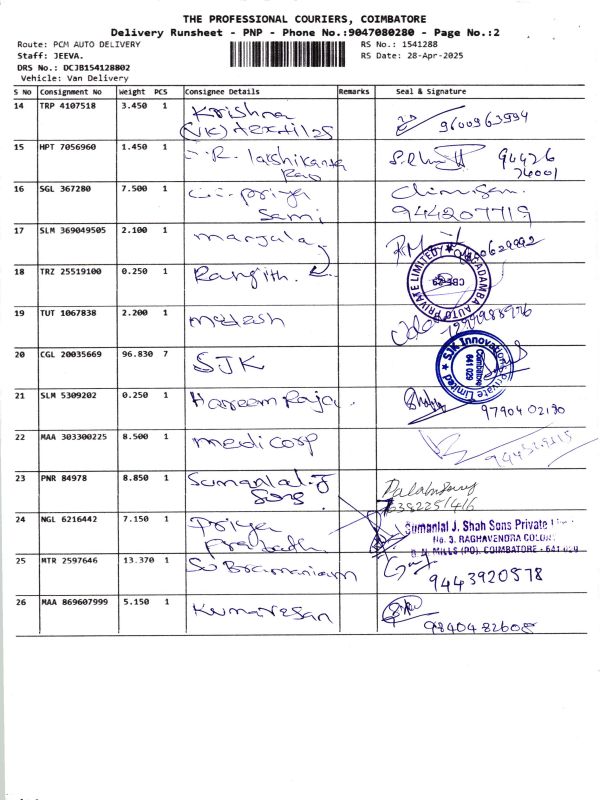 THE PROFESSIONAL COURIERS, COIMBATORE
Delivery Runsheet - PNP - Phone No.:9047080280 - Page No.:2
Route: PCM AUTO DELIVERY
RS No.: 1541288
Staff: JEEVA.
RS Date: 28-Apr-2025
DRS No.: DCJB154128802
Vehicle: Van Delivery
S No Consignment No Weight PCS Consignee Details Remarks Seal & Signature
14 TRP 4107518 3.450 1 Krishna
(VK) textiles 9600963994
15 HPT 7056960 1.450 1 R. lakshikanta
Rao 94426
26001
16 SGL 367280 7.500 1 priya
Sami 944207719
17 SLM 369049505 2.100 1 manjula
18 TRZ 25519100 0.250 1 Rangith.
JAGADAMBA AUTO PRIVATE LIMITED
CBE-29
19 TUT 1067838 2.200 1 melesh
20 CGL 20035669 96.830 7 SJK
SJK Innovations Private Limited
Coimbatore
641 029
21 SLM 5309202 0.250 1 Hareem Raja.
97904 02190
22 MAA 303300225 8.500 1 medicorp
23 PNR 84978 8.850 1 Sumanlal.J
Sons
24 NGL 6216442 7.150 1 Priya
Sumanlal J. Shah Sons Private
No. 3, RAGHAVENDRA COLONY
MILLS (PO), COIMBATORE - 641 029
25 MTR 2597646 13.370 1 SuBramaniam
9443920578
26 MAA 869607999 5.150 1 Kumaresan
98404 82608